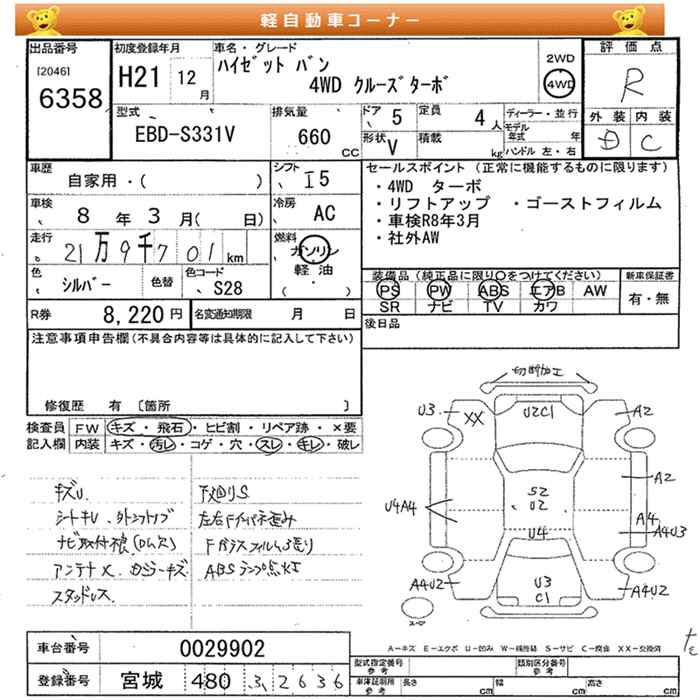 軽自動車コーナー
出品番号
[2046]
6358
初度登録年月
H21 12月
車名・グレード
ハイゼット バン
4WD クルーズターボ
2WD
4WD
評価点
R
外装 内装
D C
型式
EBD-S331V
排気量
660 CC
ドア 5
形状 V
定員 4人
積載 kg
ディーラー・並行
モデル年式 年
ハンドル 左・右
車歴
自家用・( )
シフト
I5
車検
8年 3月( 日)
冷房
AC
走行
21万9千701km
燃料
ガソリン
軽油
( )
色
シルバー
色替
色コード
S28
R券 8,220円
名変通知期限 月 日
セールスポイント (正常に機能するものに限ります)
・4WD ターボ
・リフトアップ ・ゴーストフィルム
・車検R8年3月
・社外AW
装備品(純正品に限り○をつけてください)
PS PW ABS エアB AW
SR ナビ TV カワ
新車保証書
有・無
後日品
注意事項申告欄(不具合内容等は具体的に記入して下さい)
修復歴 有 〔箇所 〕
検査員記入欄
FW キズ・飛石・ヒビ割・リペア跡・×要
内装 キズ・汚レ・コゲ・穴・スレ・キレ・破レ
キズU
シートキレ
ナビ取付
アンテナX
スタッドレス
下廻りS
左右Fインパネ歪み
Fガラスフィルム
ABSランプ点灯
切断加工
U3
XX
U2C1
A2
A2
S2
U2
U4A4
U4
A4
A4U3
A4U2
U3
C1
A4U2
スペア
A-キズ E-エクボ U-凹み W-補修跡 S-サビ C-腐食 XX-交換済
車台番号 0029902
登録番号 宮城 480 2636
型式指定番号 参考
類別区分番号 参考
車庫証明用 参考
長さ cm 幅 cm 高さ cm